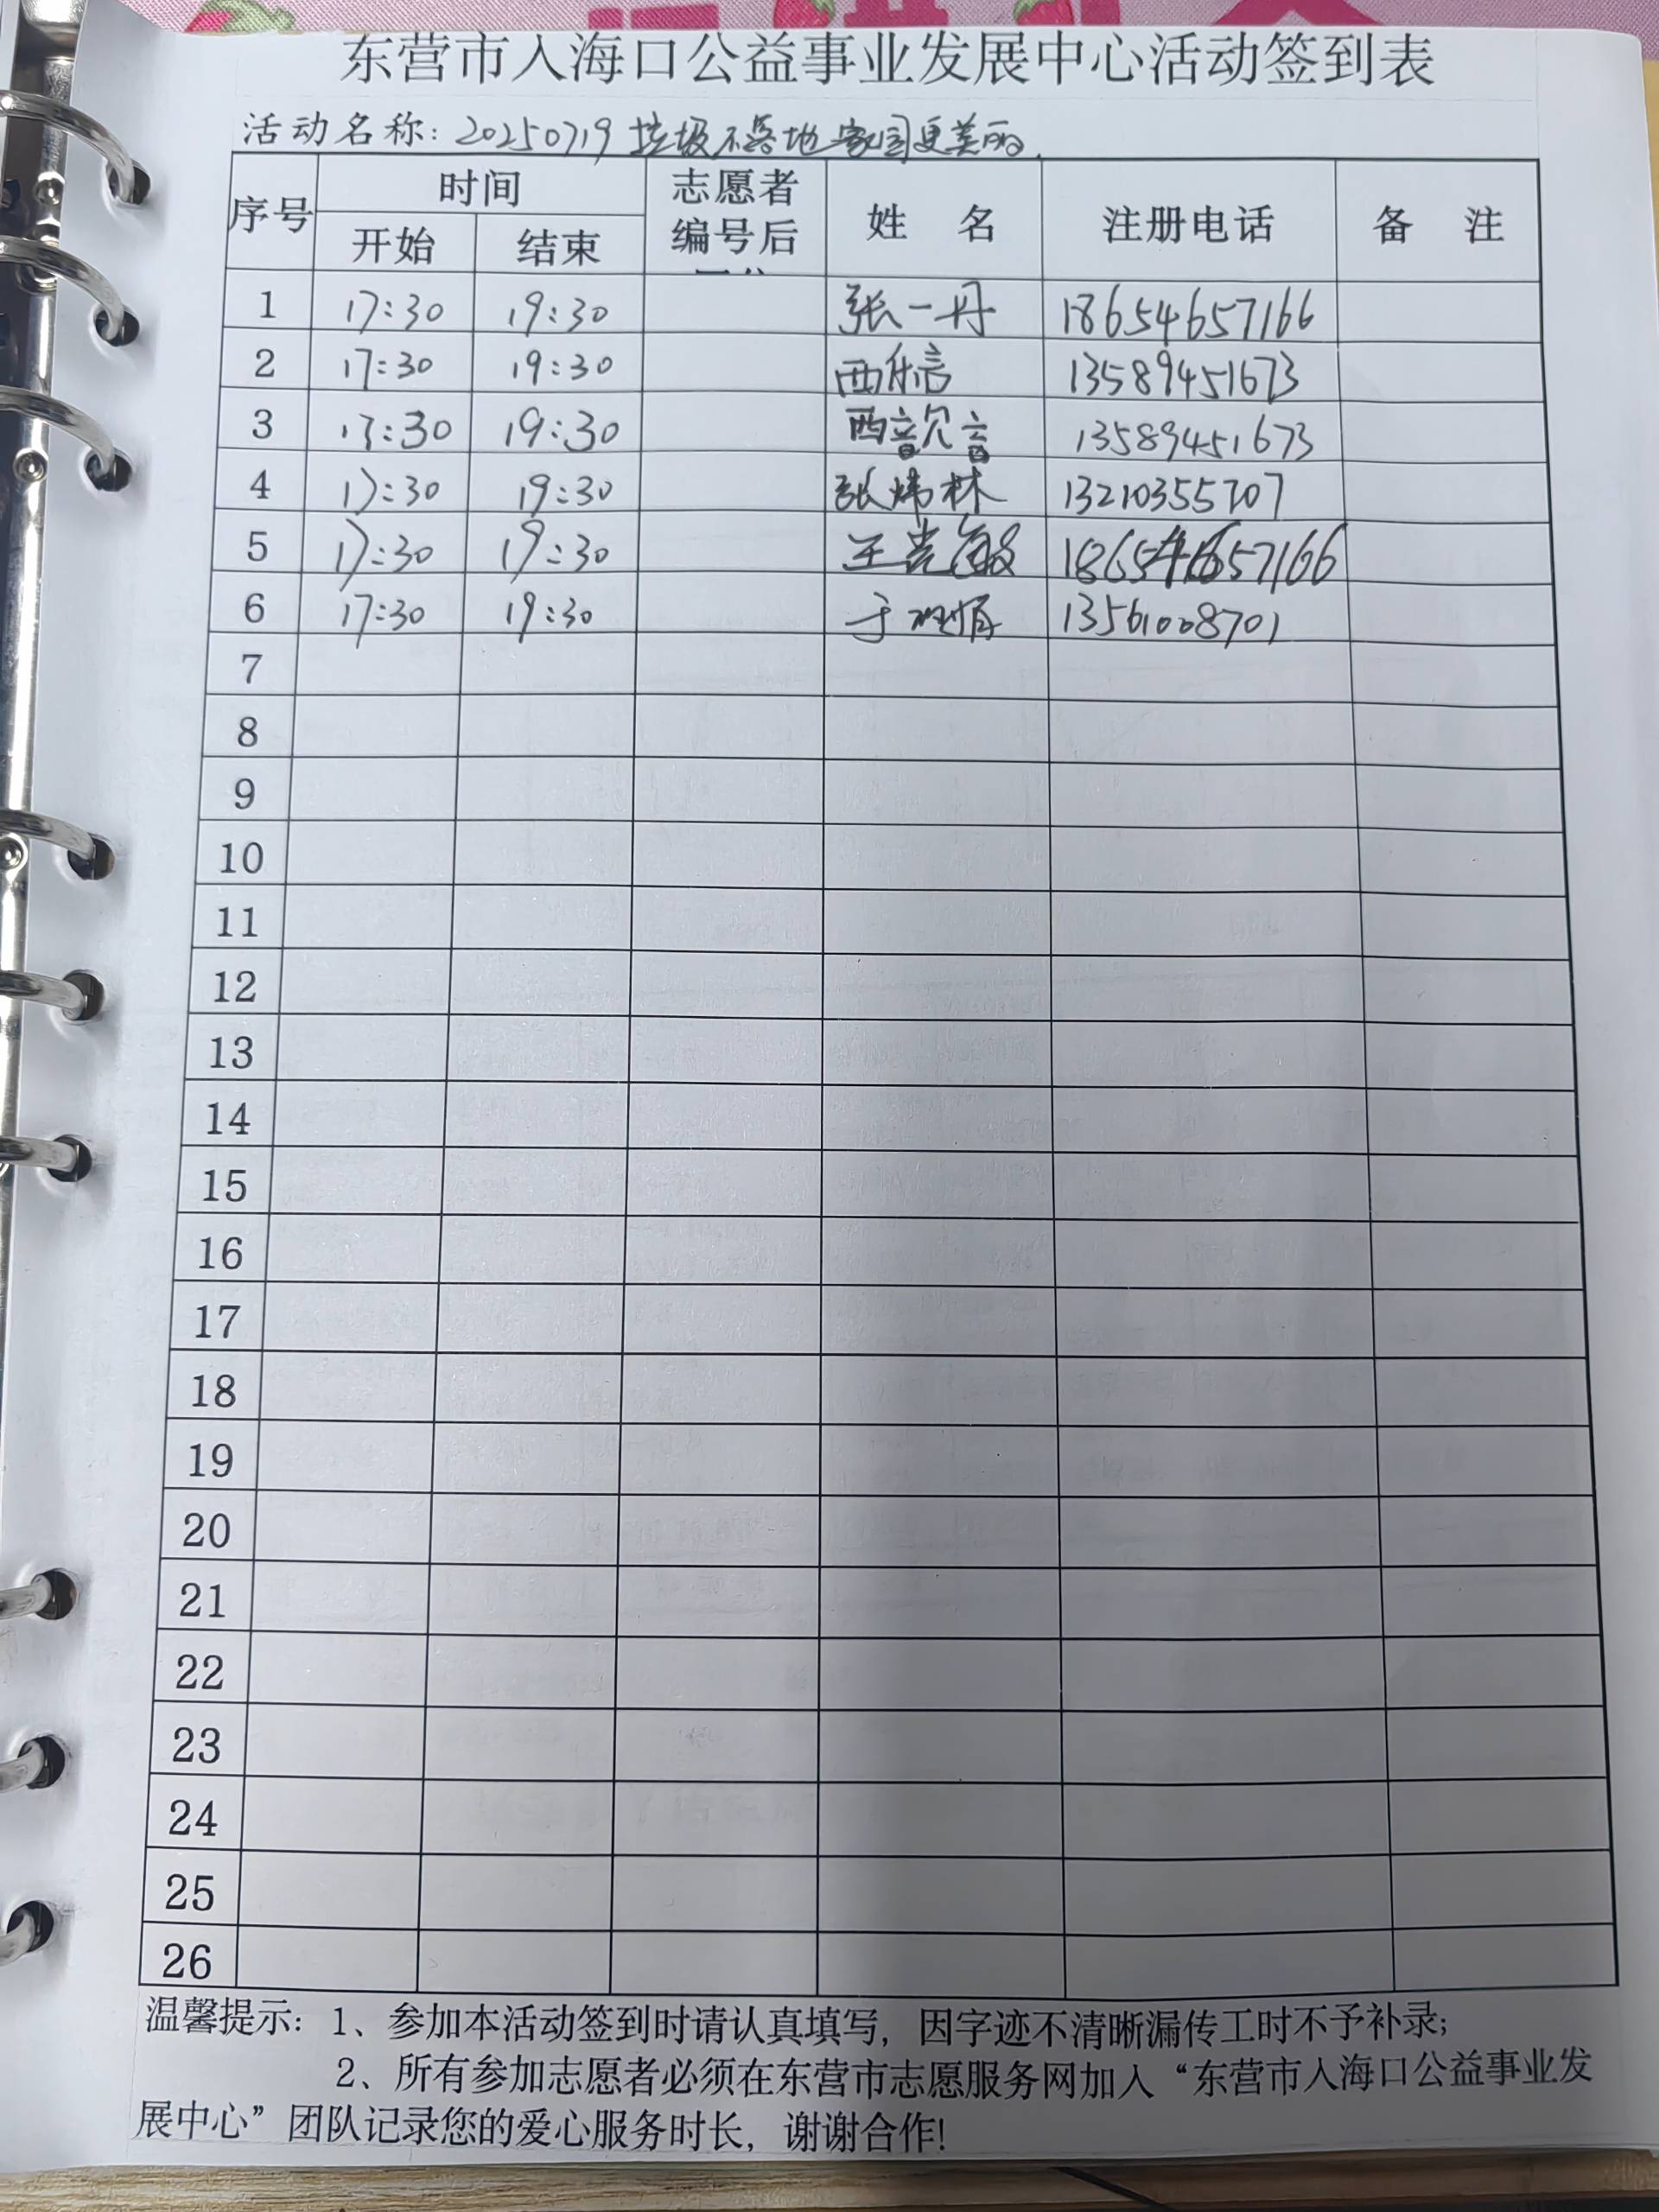 东营市入海口公益事业发展中心活动签到表
活动名称：20250719 垃圾不落地家园更美丽.
序号 时间 志愿者编号后 姓 名 注册电话 备 注
开始 结束
1 17:30 19:30 张一丹 18654657166
2 17:30 19:30 西乐言 13589451673
3 17:30 19:30 西歆音 13589451673
4 17:30 19:30 张炜林 13210355707
5 17:30 19:30 王 18654657166
6 17:30 19:30 于 13561008701
7
8
9
10
11
12
13
14
15
16
17
18
19
20
21
22
23
24
25
26
温馨提示：1、参加本活动签到时请认真填写，因字迹不清晰漏传工时不予补录；
2、所有参加志愿者必须在东营市志愿服务网加入“东营市入海口公益事业发
展中心”团队记录您的爱心服务时长，谢谢合作!